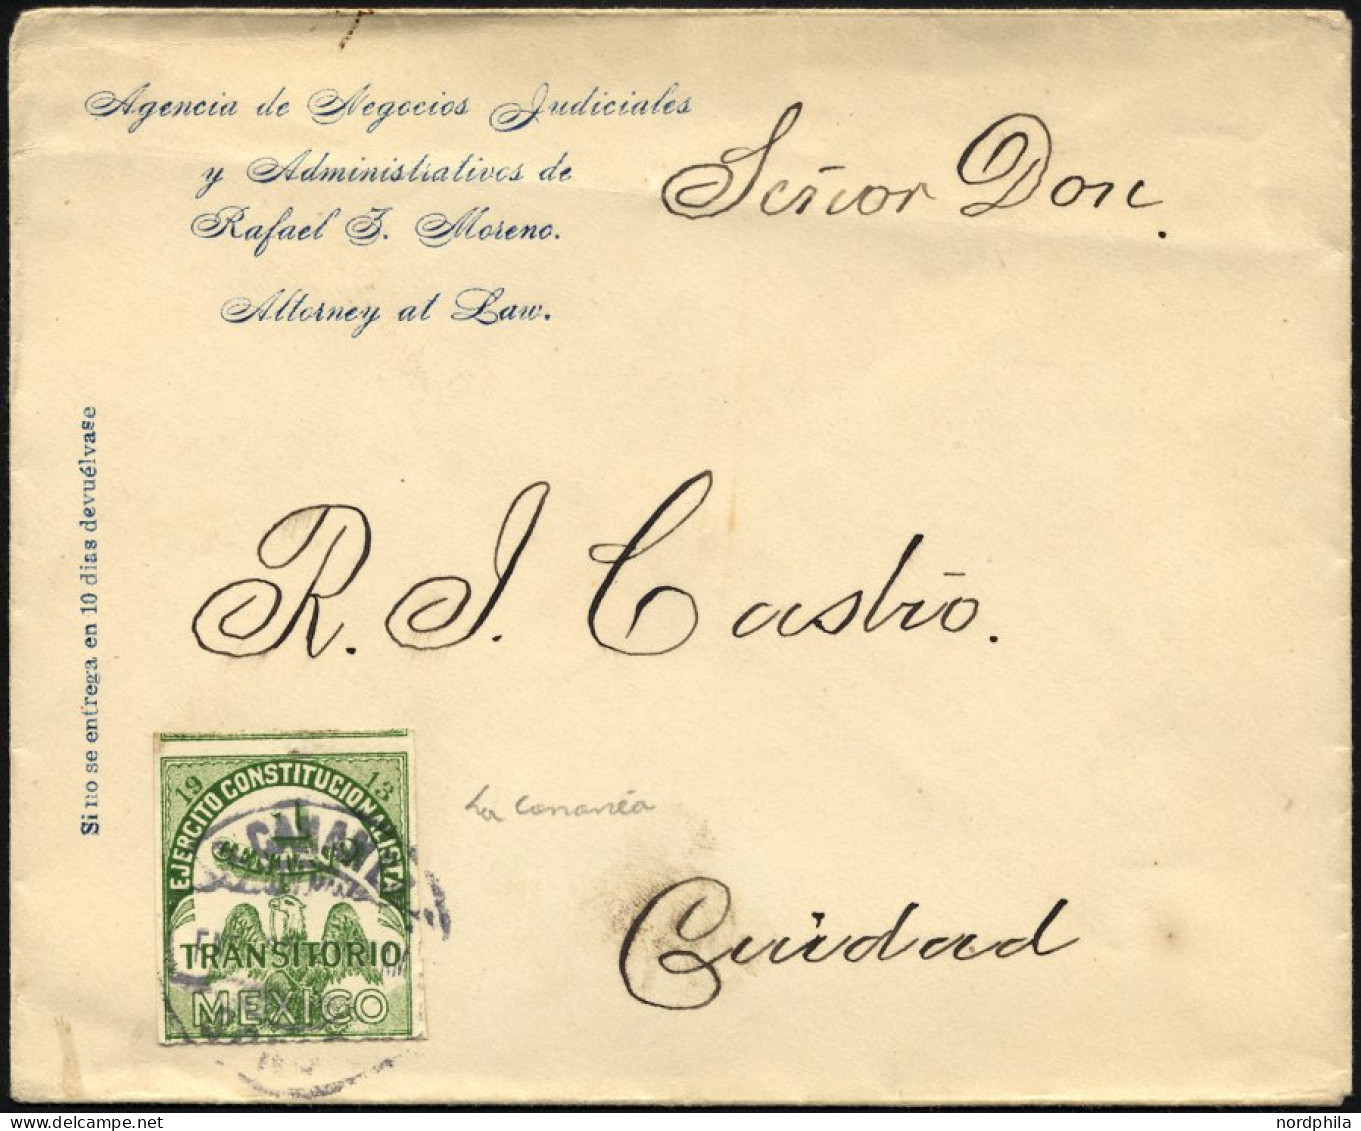 Agencia de Negocios Judiciales
y Administrativos de
Rafael J. Moreno.
Attorney at Law.
Señor Don.
Si no se entrega en 10 dias devuélvase
R. J. Castro.
1913
EJERCITO CONSTITUCIONALISTA
1
CENTAVO
CANANEA
TRANSITORIO
MEXICO
La Cananéa
Cuidad
nordphila